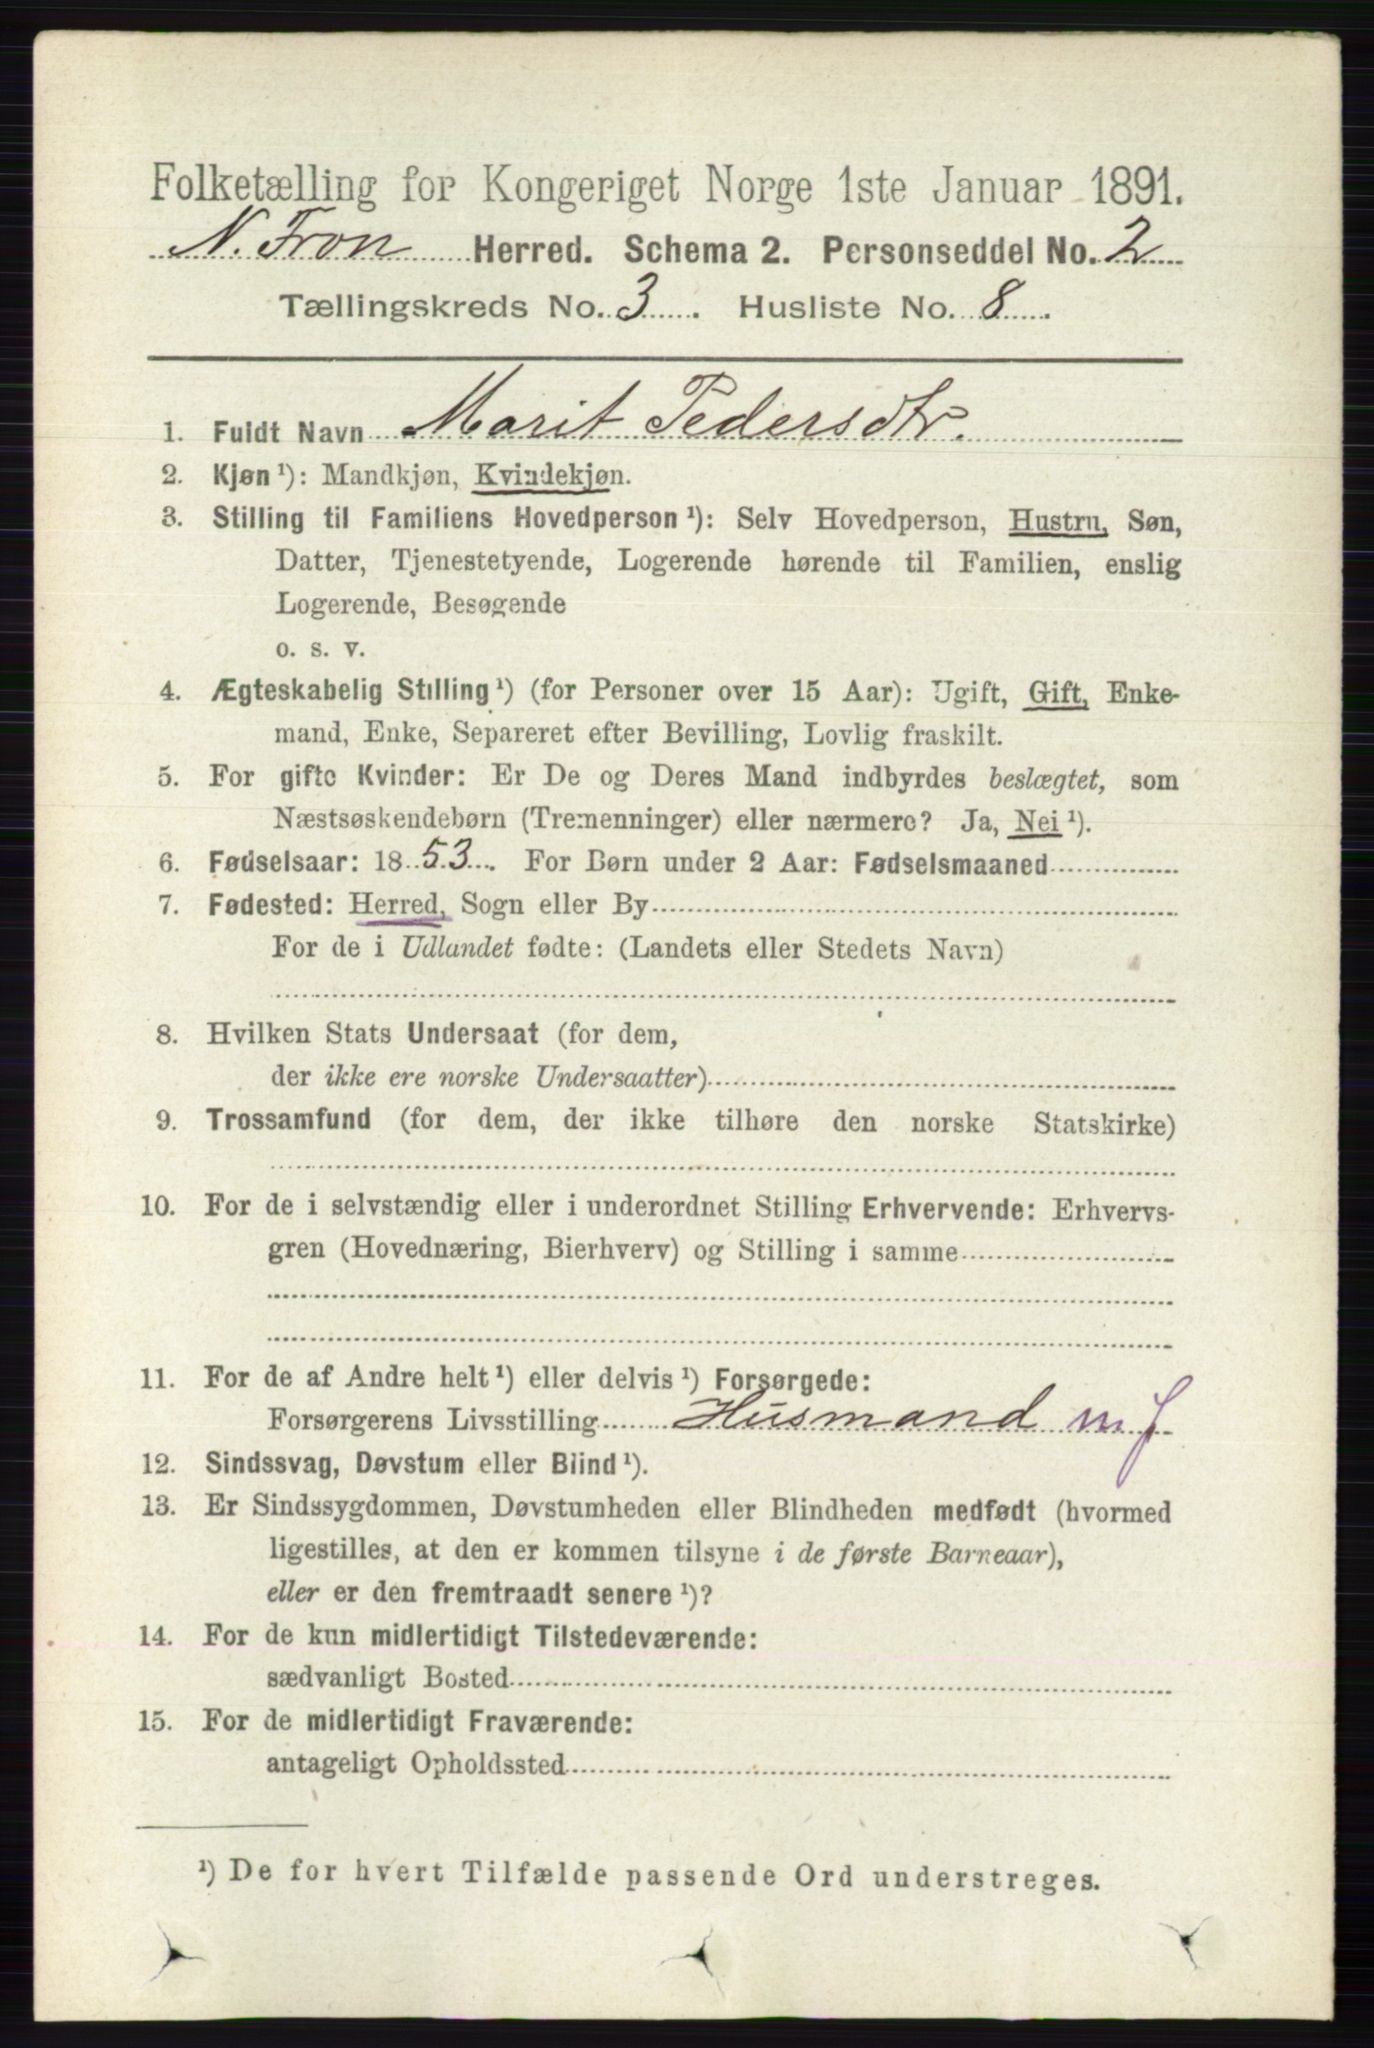 Folketælling for Kongeriget Norge 1ste Januar 1891.
N. Fron Herred. Schema 2. Personseddel No. 2
Tællingskreds No. 3. Husliste No. 8.
1. Fuldt Navn Marit Pedersdtr.
2. Kjøn¹): Mandkjøn, Kvindekjøn.
3. Stilling til Familiens Hovedperson¹): Selv Hovedperson, Hustru, Søn,
Datter, Tjenestetyende, Logerende hørende til Familien, enslig
Logerende, Besøgende
o. s. v.
4. Ægteskabelig Stilling¹) (for Personer over 15 Aar): Ugift, Gift, Enke-
mand, Enke, Separeret efter Bevilling, Lovlig fraskilt.
5. For gifte Kvinder: Er De og Deres Mand indbyrdes beslægtet, som
Næstsøskendebørn (Tremenninger) eller nærmere? Ja, Nei¹).
6. Fødselsaar: 1853. For Børn under 2 Aar: Fødselsmaaned
7. Fødested: Herred, Sogn eller By
For de i Udlandet fødte: (Landets eller Stedets Navn)
8. Hvilken Stats Undersaat (for dem,
der ikke ere norske Undersaatter)
9. Trossamfund (for dem, der ikke tilhøre den norske Statskirke)
10. For de i selvstændig eller i underordnet Stilling Erhvervende: Erhvervs-
gren (Hovednæring, Bierhverv) og Stilling i samme
11. For de af Andre helt¹) eller delvis¹) Forsørgede:
Forsørgerens Livsstilling Husmand m j
12. Sindssvag, Døvstum eller Blind¹).
13. Er Sindssygdommen, Døvstumheden eller Blindheden medfødt (hvormed
ligestilles, at den er kommen tilsyne i de første Barneaar),
eller er den fremtraadt senere¹)?
14. For de kun midlertidigt Tilstedeværende:
sædvanligt Bosted
15. For de midlertidigt Fraværende:
antageligt Opholdssted
¹) De for hvert Tilfælde passende Ord understreges.